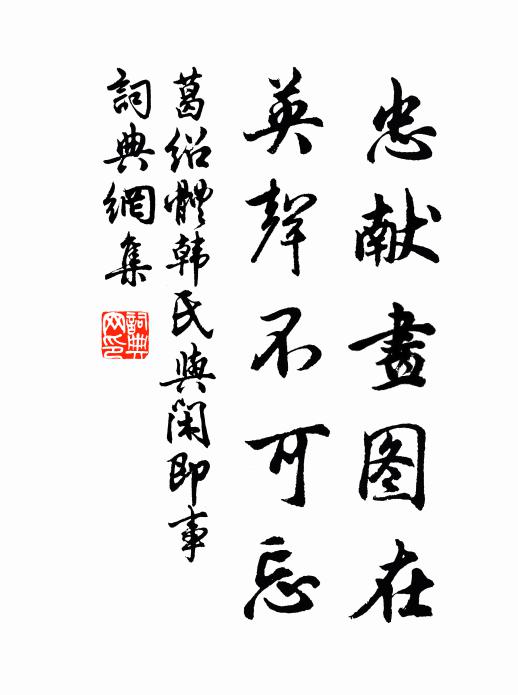 忠献畫图在
英聲不可忘
葛绍體韩氏與闲即事
詞典網集
詞典网印